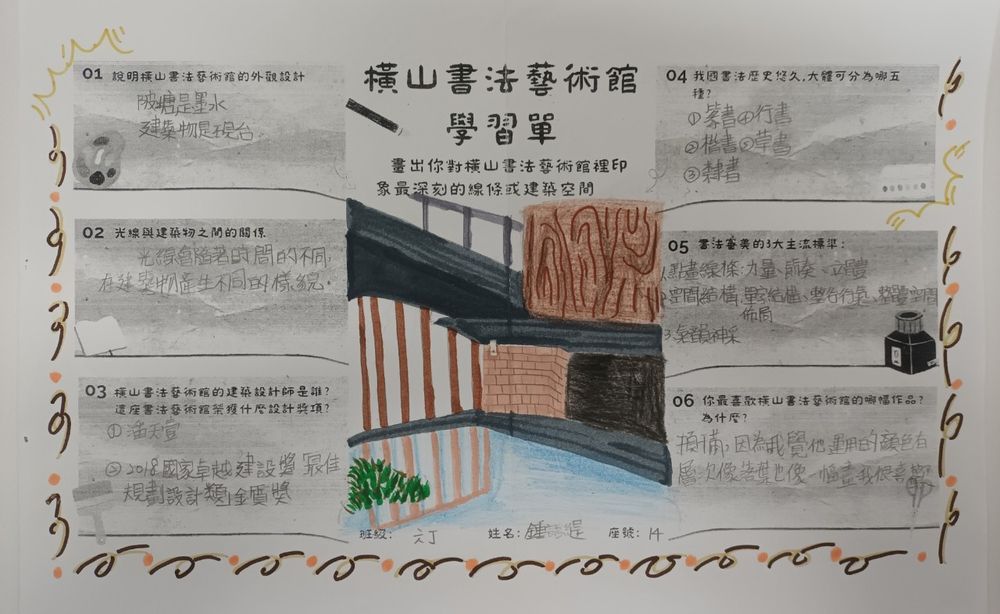 橫山書法藝術館
學習單
畫出你對橫山書法藝術館裡印
象最深刻的線條或建築空間
01 說明橫山書法藝術館的外觀設計
陂塘是墨水
建築物是硯台
02 光線與建築物之間的關係
光線會隨著時間的不同,
在建築物產生不同的樣貌.
03 橫山書法藝術館的建築設計師是誰?
這座書法藝術館榮獲什麼設計獎項?
①潘天壹
②2018國家卓越建設獎 最佳
規劃設計類金質獎
04 我國書法歷史悠久,大體可分為哪五
種?
①篆書④行書
②楷書⑤草書
③隸書
05 書法審美的3大主流標準:
1.點畫線條:力量、節奏、立體
空間結構:單字結構、整合行氣、整體空間
佈局
3.氣韻神采
06 你最喜歡橫山書法藝術館的哪幅作品?
為什麼?
因為我覺他運用的顏色有
層次像落葉也像一幅畫我很喜歡
班級: 六丁
姓名: 鍾
座號: 14